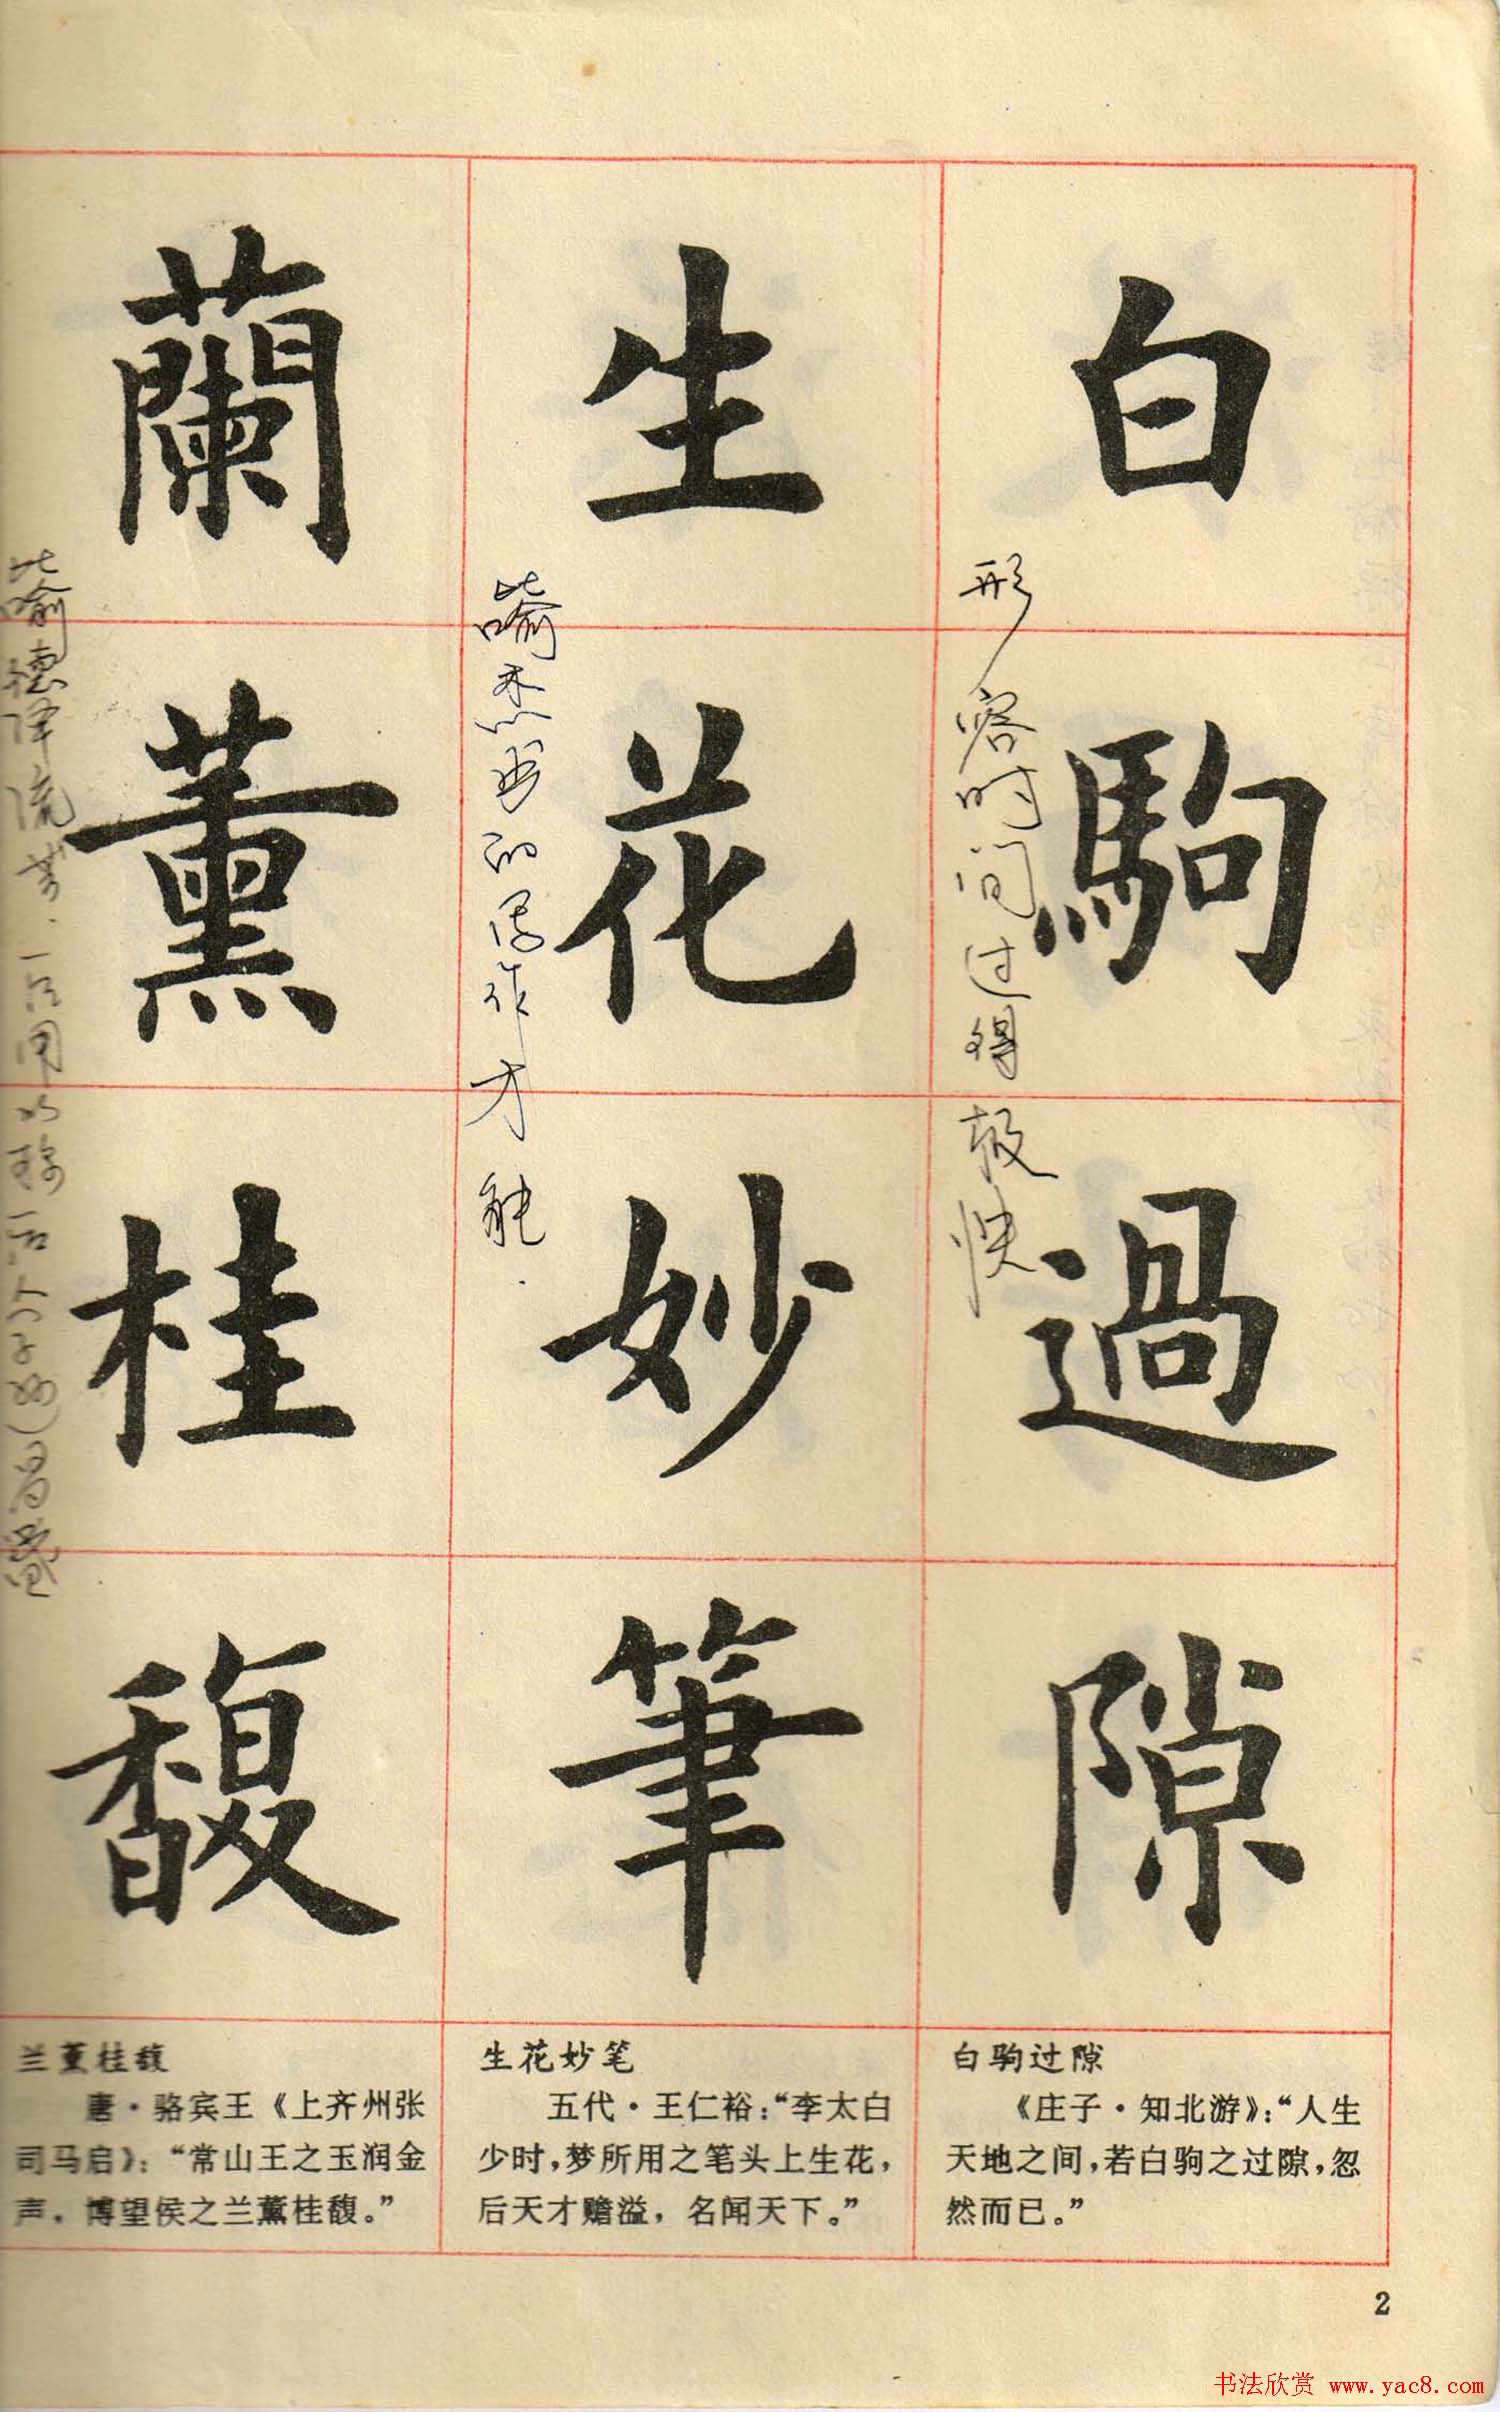 白駒過隙
形容时间过得极快
生花妙筆
比喻杰出的写作才能.
蘭薰桂馥
比喻德泽流芳.
白驹过隙
《庄子·知北游》：“人生
天地之间，若白驹之过隙，忽
然而已。”
生花妙笔
五代·王仁裕：“李太白
少时，梦所用之笔头上生花，
后天才赡溢，名闻天下。”
兰薰桂馥
唐·骆宾王《上齐州张
司马启》：“常山王之玉润金
声，博望侯之兰薰桂馥。”
2
书法欣赏 www.yac8.com